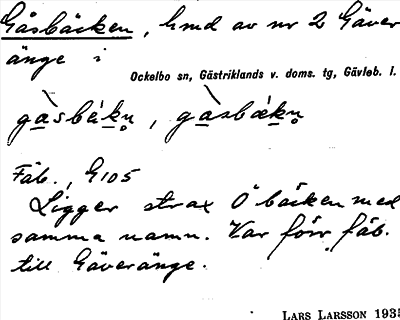 Gåsbäcken, hmd av nr 2 Gäver
änge i
Ockelbo sn, Gästriklands v. doms. tg, Gävleb. l.
gàsbákn̥, gàsbǽkn̥
Fäb., G105
Ligger strax Ö bäcken med
samma namn. Var förr fäb.
till Gäveränge.
LARS LARSSON 1935